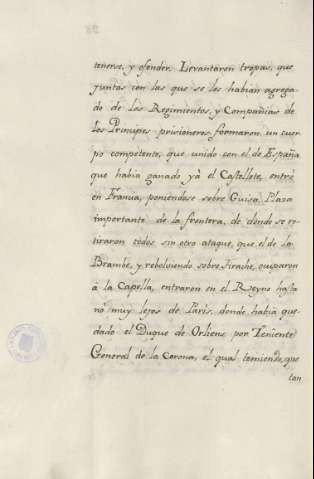 tenerse, y ofender. Levantaron tropas, que
juntas con las que se les habian agrega-
do de los Regimientos, y Compañias de
los Principes prisioneros formaron un cuer-
po competente, que unido con el de España
que habia ganado yà el Castelete, entrò
en Francia, poniendose sobre Guisa, Plaza
importante de la frontera, de donde se re-
tiraron todos, sin otro ataque, que el de la
Brambe, y rebolviendo sobre Tirache, ocuparon
à la Capella, entraron en el Reyno hasta
no muy lejos de Paris, donde habia que-
dado el Duque de Orliens por Teniente
General de la Corona, el qual temiendo, que
tan